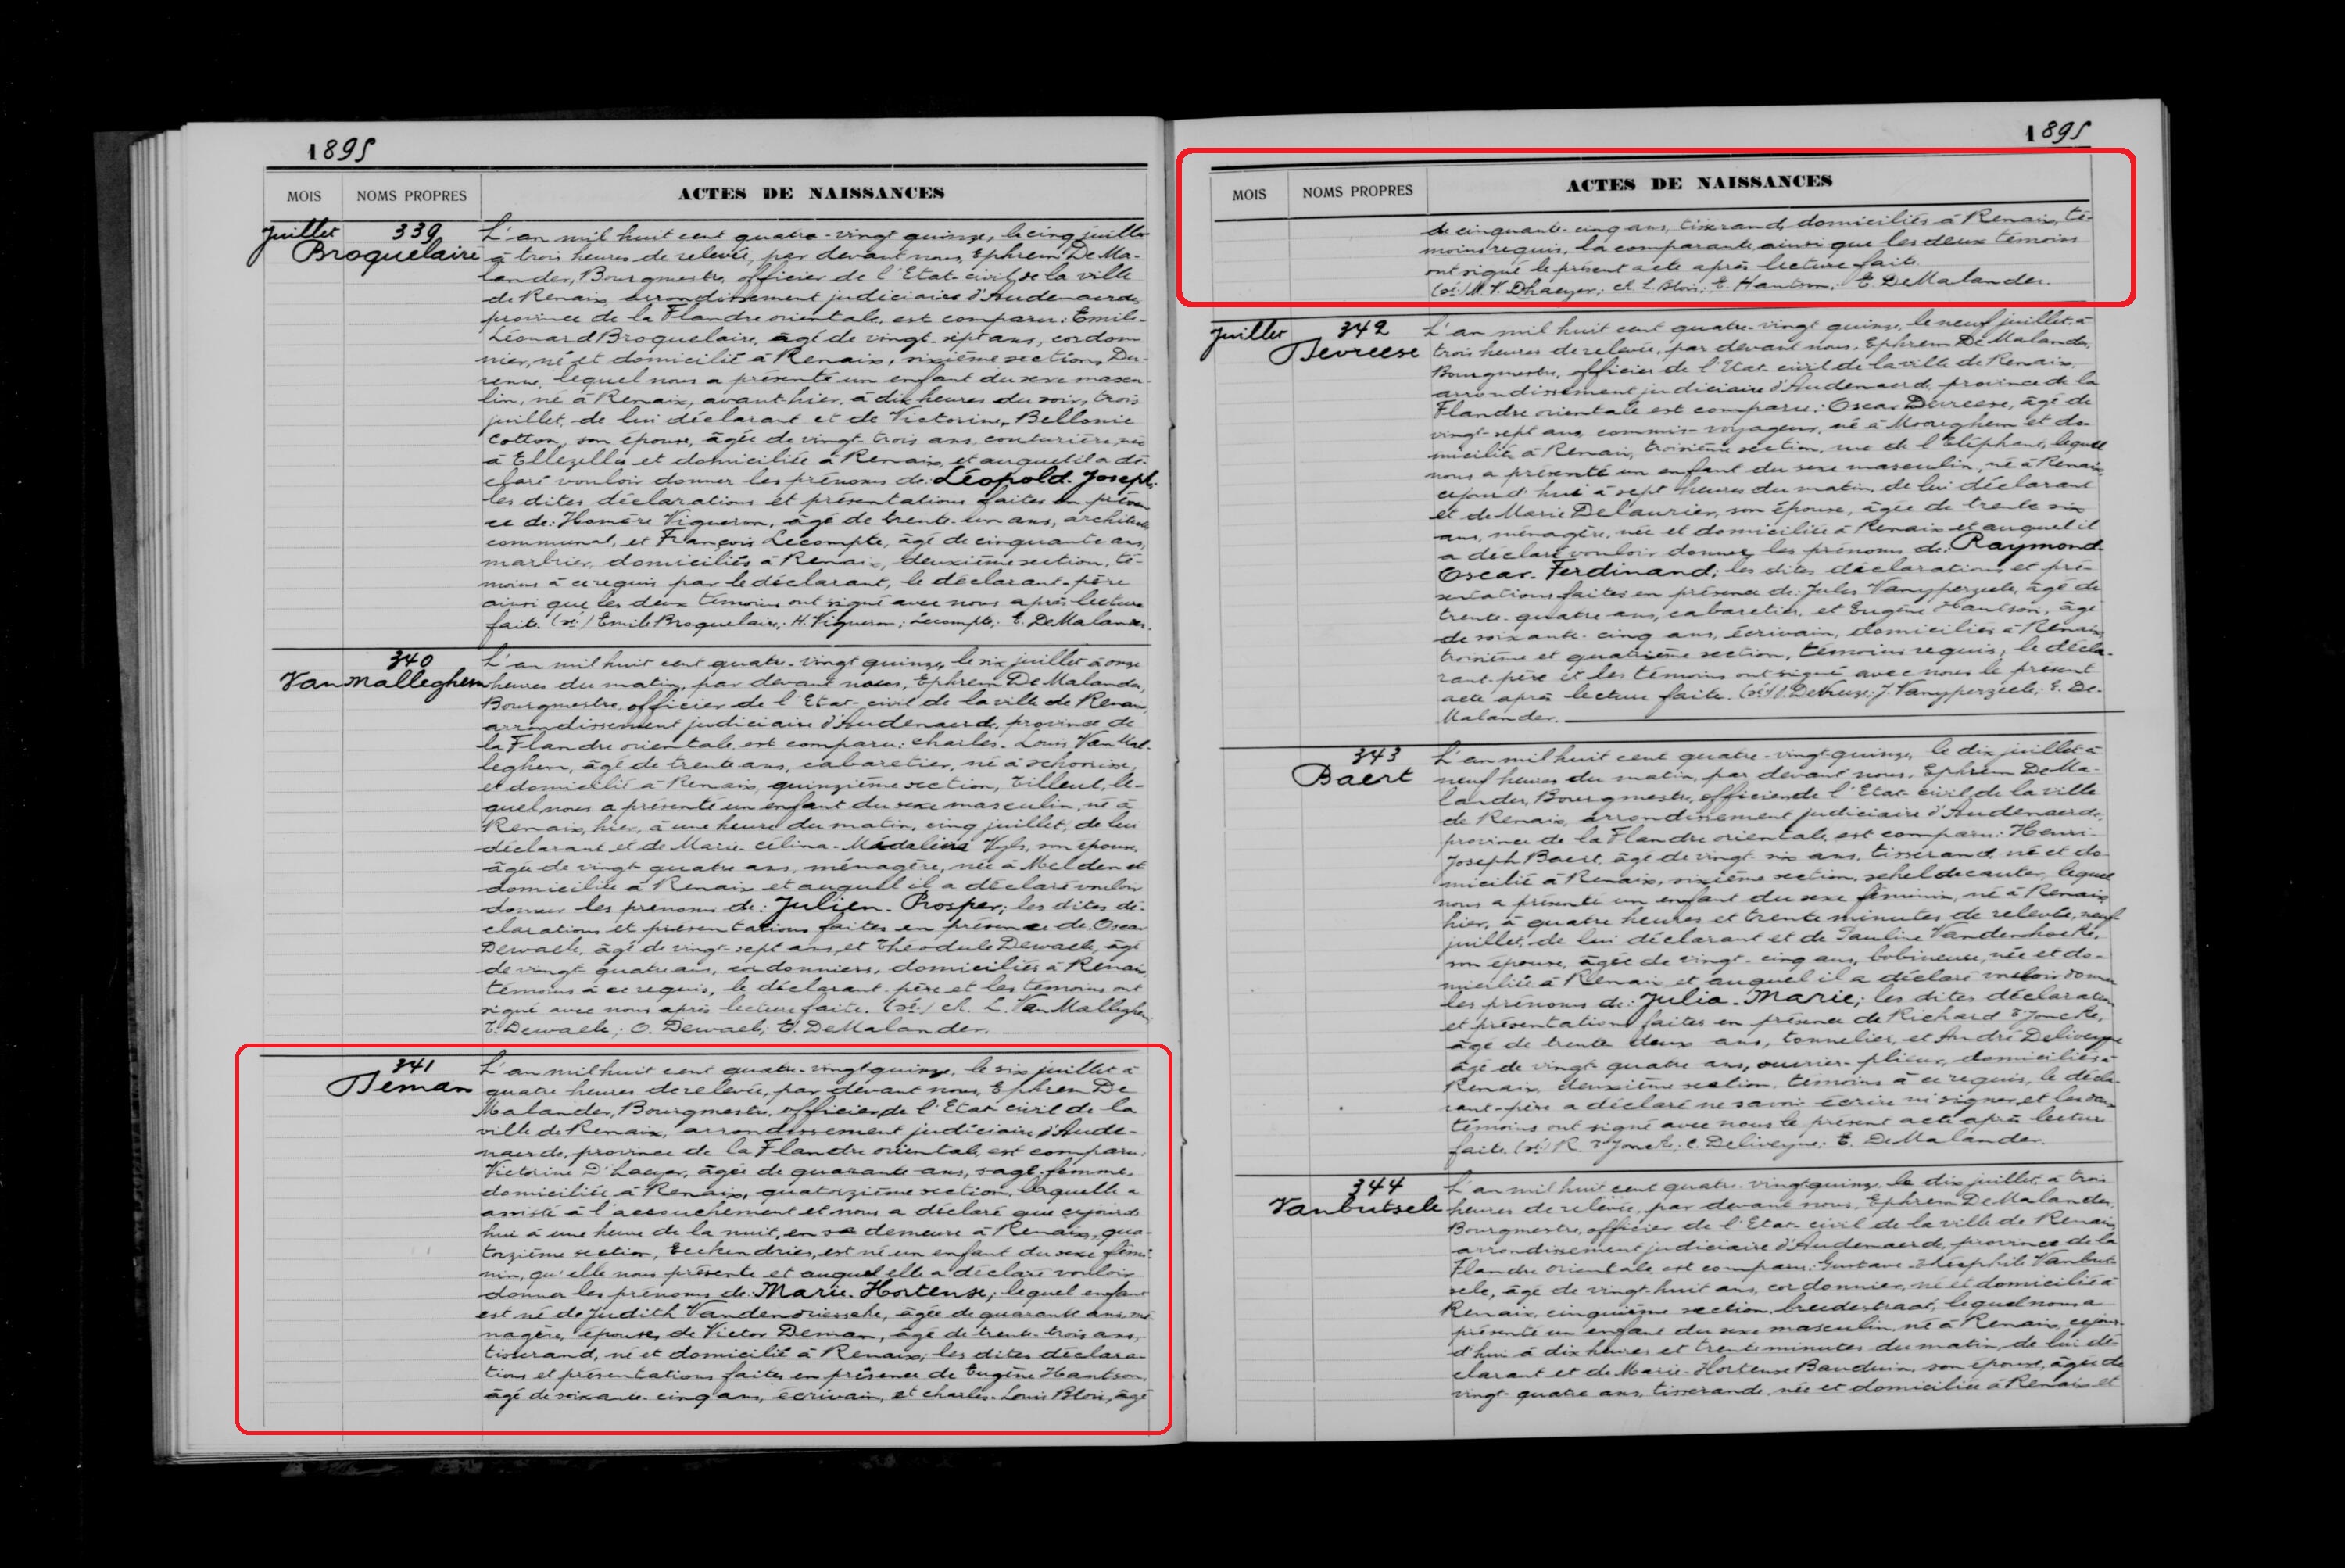 1895
MOIS NOMS PROPRES ACTES DE NAISSANCES
Juillet 339 L'an mil huit cent quatre-vingt quinze, le cinq juillet
Broquelaire à trois heures de relevée, par devant nous, Ephrem De Ma-
lander, Bourgmestre, officier de l'Etat-civil de la ville
de Renaix, arrondissement judiciaire d'Audenaerde,
province de la Flandre orientale, est comparu: Emile-
Léonard Broquelaire, âgé de vingt-sept ans, cordon
nier, né et domicilié à Renaix, sixième section,
lequel nous a présenté un enfant du sexe mascu
lin, né à Renaix, avant hier, à dix heures du soir, trois
juillet, de lui déclarant et de Victorine, Bellonie
Cotton, son épouse, âgée de vingt-trois ans, couturière, née
à Ellezelles et domiciliée à Renaix, et auquel il a dé-
claré vouloir donner les prénoms de: Léopold-Joseph;
les dites déclarations et présentations faites en présen
ce de: Homère Vigneron, âgé de trente-un ans, architecte
communal, et François Lecompte, âgé de cinquante ans,
marbrier, domiciliés à Renaix, deuxième section, té-
moins à ce requis par le déclarant, le déclarant-père
ainsi que les deux témoins ont signé avec nous après lecture
faite. (sé:) Emile Broquelaire; H. Vigneron; Lecompte; E. DeMalander.
340 L'an mil huit cent quatre-vingt quinze, le six juillet à onze
Van Malleghem heures du matin, par devant nous, Ephrem De Malander,
Bourgmestre, officier de l'Etat-civil de la ville de Renaix,
arrondissement judiciaire d'Audenaerde, province de
la Flandre orientale, est comparu: Charles-Louis Van Mal-
leghem, âgé de trente ans, cabaretier, né à Schoorisse,
et domicilié à Renaix, quinzième section, Tilleul, le-
quel nous a présenté un enfant du sexe masculin, né à
Renaix, hier, à une heure du matin, cinq juillet, de lui
déclarant et de Marie-Célina-Médalina Wyls, son épouse,
âgée de vingt quatre ans, ménagère, née à Melden et
domiciliée à Renaix et auquel il a déclaré vouloir
donner les prénoms de: Julien-Prosper; les dites dé-
clarations et présentations faites en présence de Oscar
Dewaele, âgé de vingt-sept ans, et Théodule Dewaele, âgé
de vingt quatre ans, cordonniers, domiciliés à Renaix,
témoins à ce requis, le déclarant-père et les témoins ont
signé avec nous après lecture faite. (sé:) Ch. L. Van Malleghem
T. Dewaele; O. Dewaele; E. DeMalander.
341 L'an mil huit cent quatre-vingt quinze, le six juillet à
Deman quatre heures de relevée, par devant nous, Ephrem De
Malander, Bourgmestre, officier de l'Etat civil de la
ville de Renaix, arrondissement judiciaire d'Aude-
naerde, province de la Flandre orientale, est comparu:
Victorine D'haeyer, âgée de quarante ans, sage-femme,
domiciliée à Renaix, quatorzième section, laquelle a
assisté à l'accouchement et nous a déclaré que cejourd
hui à une heure de la nuit, en sa demeure à Renaix, qua-
torzième section, Eeckendries, est né un enfant du sexe fémi-
nin, qu'elle nous présente et auquel elle a déclaré vouloir
donner les prénoms de: Marie-Hortense; lequel enfant
est né de Judith Vandendriessche, âgée de quarante ans, mé-
nagère, épouse de Victor Deman, âgé de trente-trois ans,
tisserand, né et domicilié à Renaix; les dites déclara-
tions et présentations faites en présence de Eugène Hantson,
âgé de soixante-cinq ans, écrivain, et Charles-Louis Blois, âgé
1895
MOIS NOMS PROPRES ACTES DE NAISSANCES
de cinquante-cinq ans, tisserand, domiciliés à Renaix, té-
moins requis, la comparante ainsi que les deux témoins
ont signé le présent acte après lecture faite.
(sé:) M. V. Dhaeyer; Ch. L. Blois; E. Hantson; E. DeMalander.
Juillet 342 L'an mil huit cent quatre-vingt quinze, le neuf juillet à
Devreese trois heures de relevée, par devant nous, Ephrem De Malander,
Bourgmestre, officier de l'Etat-civil de la ville de Renaix,
arrondissement judiciaire d'Audenaerde, province de la
Flandre orientale est comparu: Oscar Devreese, âgé de
vingt-sept ans, commis-voyageur, né à Mooreghem et do-
micilié à Renaix, troisième section, rue de l'Eléphant, lequel
nous a présenté un enfant du sexe masculin, né à Renaix,
cejourd'hui à sept heures du matin, de lui déclarant
et de Marie Delaurier, son épouse, âgée de trente six
ans, ménagère, née et domiciliée à Renaix et auquel il
a déclaré vouloir donner les prénoms de: Raymond-
Oscar-Ferdinand; les dites déclarations et pré-
sentations faites en présence de: Jules Vanyperzeele, âgé de
trente-quatre ans, cabaretier, et Eugène Hantson, âgé
de soixante-cinq ans, écrivain, domiciliés à Renaix,
troisième et quatrième section, témoins requis, le décla-
rant-père et les témoins ont signé avec nous le présent
acte après lecture faite. (sé:) Devreese; J. Vanyperzeele; E. De-
Malander.
343 L'an mil huit cent quatre-vingt-quinze, le dix juillet à
Baert neuf heures du matin, par devant nous, Ephrem De Ma-
lander, Bourgmestre, officier de l'Etat-civil de la ville
de Renaix, arrondissement judiciaire d'Audenaerde,
province de la Flandre orientale, est comparu: Henri-
Joseph Baert, âgé de vingt-six ans, tisserand, né et do-
micilié à Renaix, sixième section, scheldecauter, lequel
nous a présenté un enfant du sexe féminin, né à Renaix,
hier, à quatre heures et trente minutes de relevée, neuf
juillet, de lui déclarant et de Pauline Vandenhoeke,
son épouse, âgée de vingt-cinq ans, bobineuse, née et do-
miciliée à Renaix et auquel il a déclaré vouloir donner
les prénoms de: Julia-Marie; les dites déclaration
et présentations faites en présence de Richard D'Joncke,
âgé de trente deux ans, tonnelier, et André Deliveyne
âgé de vingt quatre ans, ouvrier-plieur, domiciliés à
Renaix, deuxième section, témoins à ce requis, le décla-
rant-père a déclaré ne savoir écrire ni signer, et les deux
témoins ont signé avec nous le présent acte après lecture
faite. (sé:) R. D'Joncke; C. Deliveyne; E. DeMalander.
344 L'an mil huit cent quatre-vingt quinze, le dix juillet, à trois
Vanbutsele heures de relevée, par devant nous, Ephrem De Malander,
Bourgmestre, officier de l'Etat-civil de la ville de Renaix,
arrondissement judiciaire d'Audenaerde, province de la
Flandre orientale est comparu: Gustave-Théophile Vanbut-
sele, âgé de vingt-huit ans, cordonnier, né et domicilié à
Renaix, cinquième section, breedestraat, lequel nous a
présenté un enfant du sexe masculin, né à Renaix, cejour-
d'hui à dix heures et trente minutes du matin, de lui dé-
clarant et de Marie-Hortense Bauduin, son épouse, âgée de
vingt-quatre ans, tisserande, née et domiciliée à Renaix et